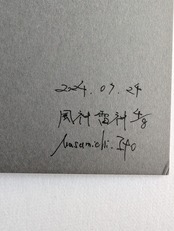 2024.09.24
風神雷神 4/8
Masamichi.Ito